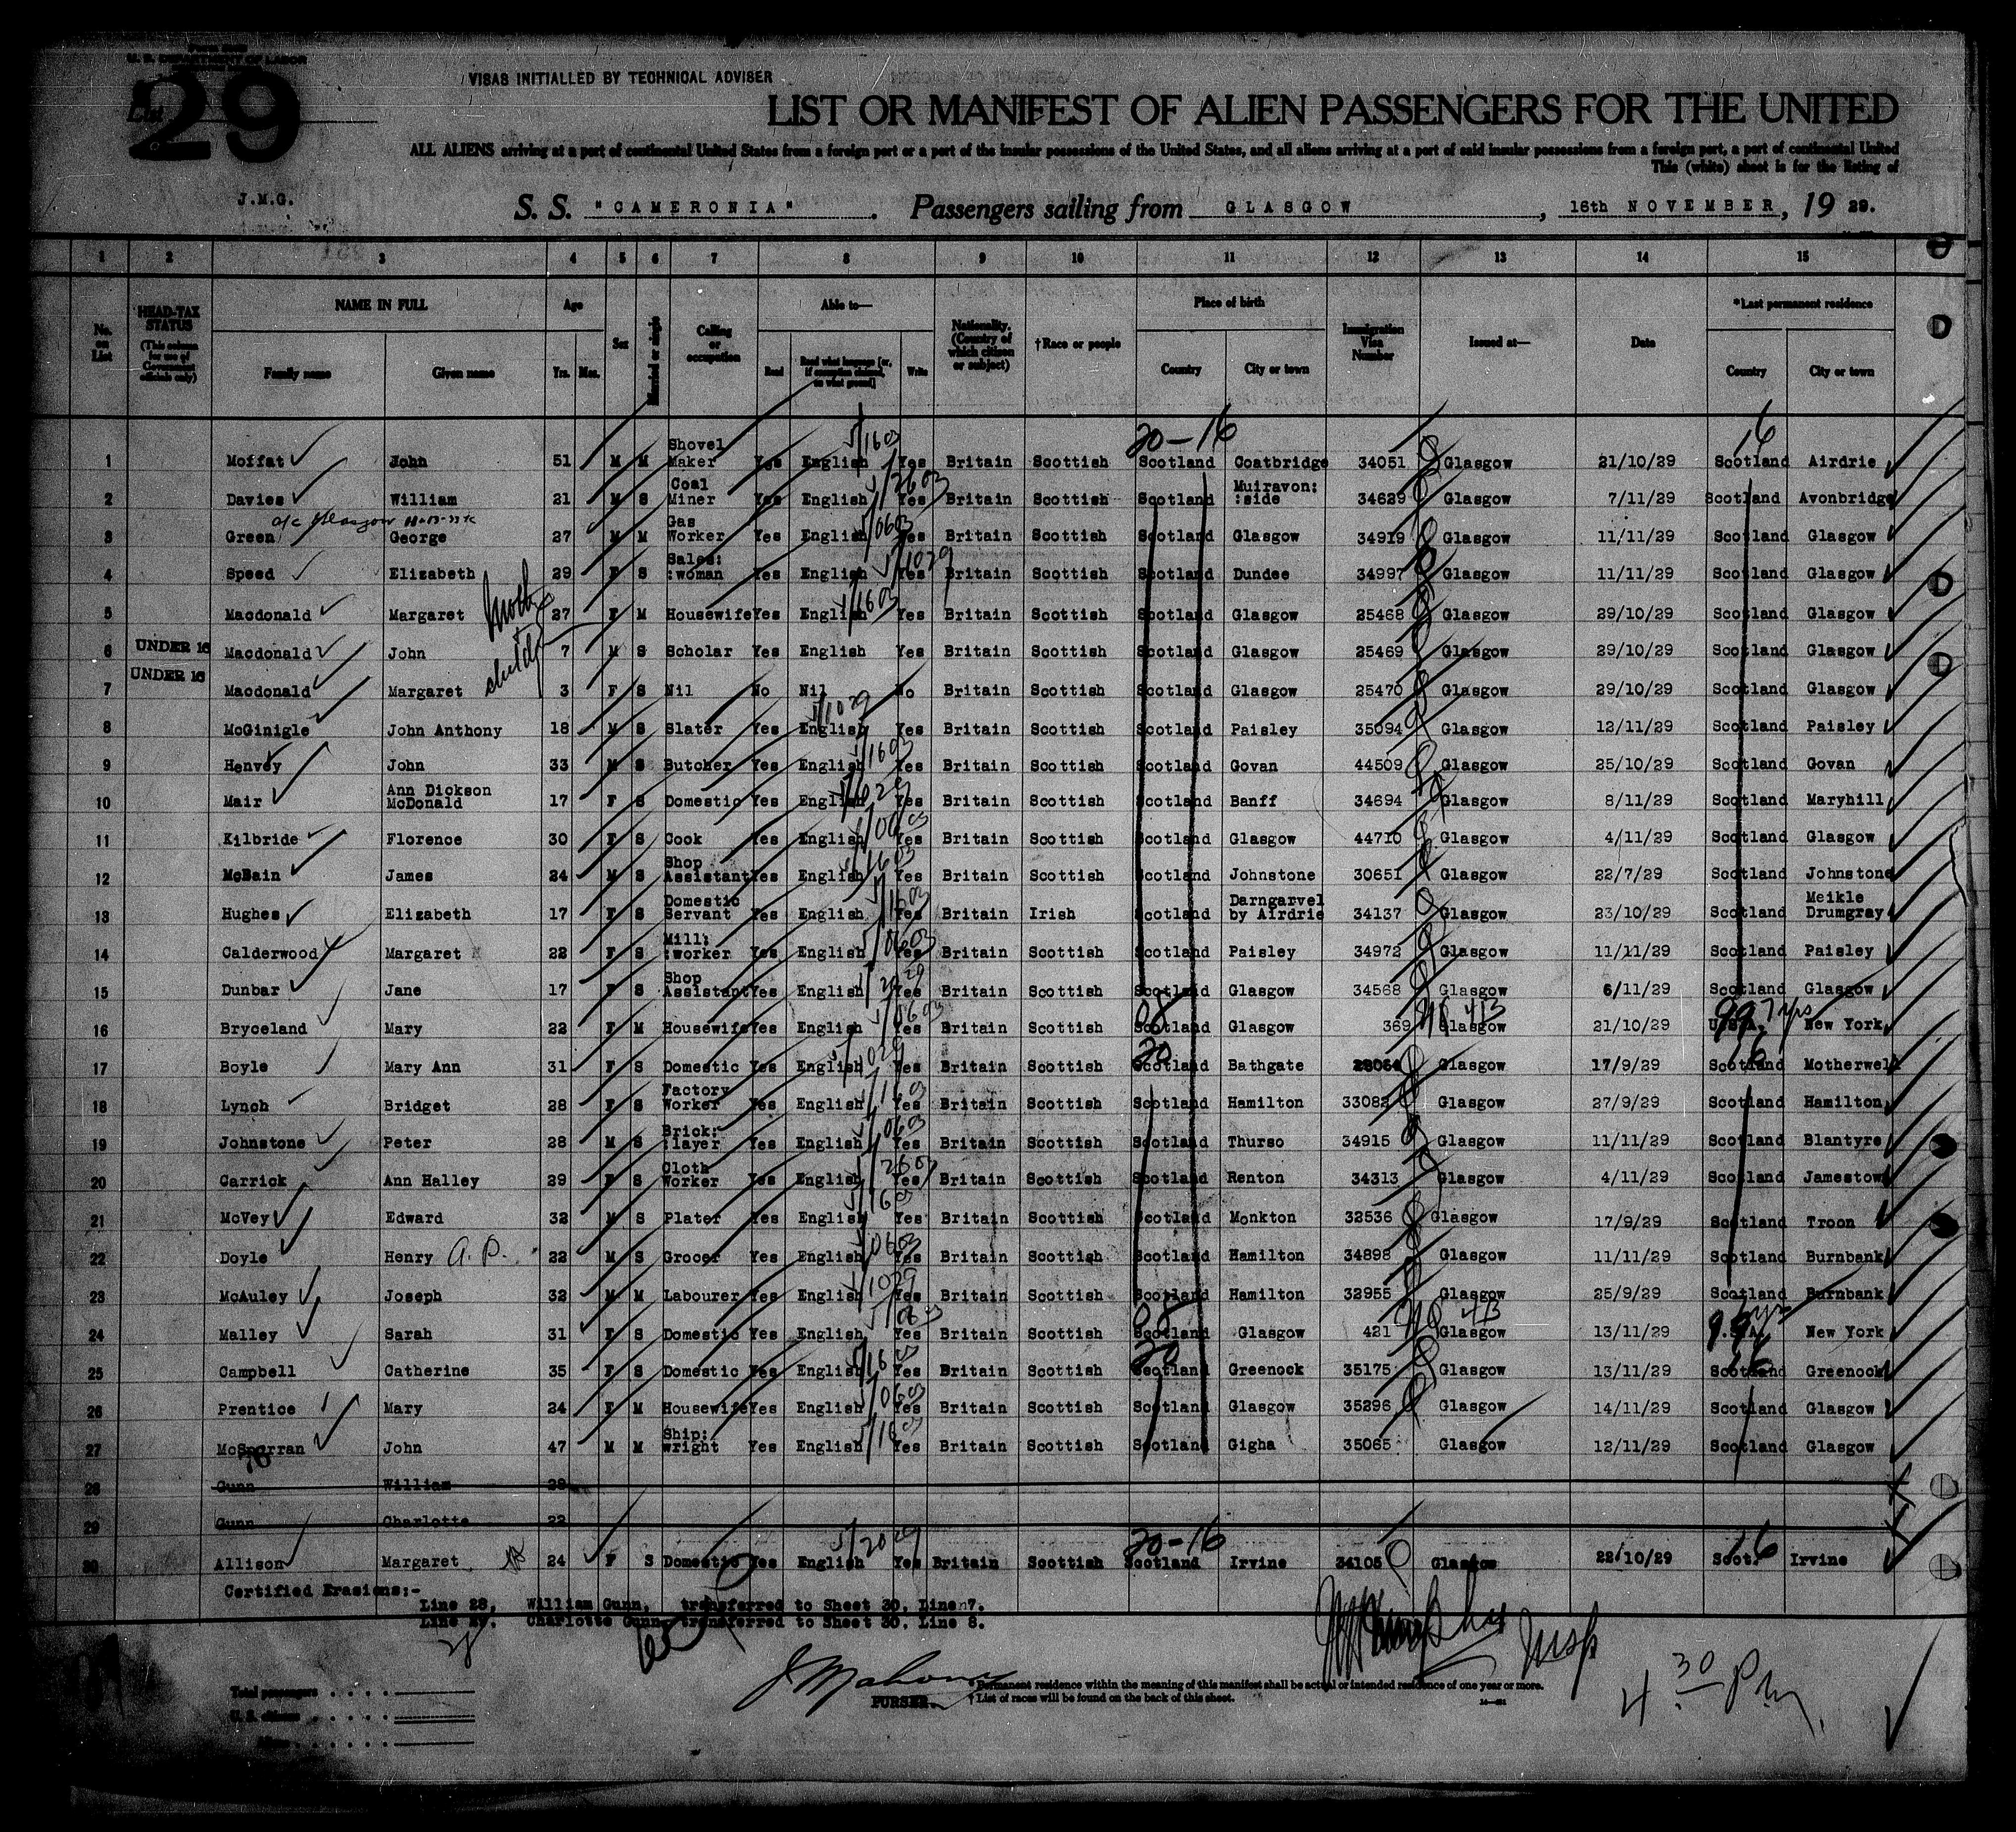 U. S. DEPARTMENT OF LABOR
List 29
VISAS INITIALLED BY TECHNICAL ADVISER
LIST OR MANIFEST OF ALIEN PASSENGERS FOR THE UNITED
ALL ALIENS arriving at a port of continental United States from a foreign port or a port of the insular possessions of the United States, and all aliens arriving at a port of said insular possessions from a foreign port, a port of continental United
This (white) sheet is for the listing of
J.M.G.
S. S. "CAMERONIA". Passengers sailing from GLASGOW, 16th NOVEMBER, 19 29.
1 2 3 4 5 6 7 8 9 10 11 12 13 14 15
No. on List
HEAD-TAX STATUS (This column for use of Government officials only)
NAME IN FULL
Family name Given name
Age Yrs. Mos.
Sex
Married or single
Calling or occupation
Able to— Read Read what language [or, if exemption claimed, on what ground] Write
Nationality. (Country of which citizen or subject)
†Race or people
Place of birth Country City or town
Immigration Visa Number
Issued at—
Date
*Last permanent residence Country City or town
20-16 16
1 Moffat John 51 M M Shovel Maker Yes English Yes Britain Scottish Scotland Coatbridge 34051 Glasgow 21/10/29 Scotland Airdrie
2 Davies William 21 M S Coal Miner Yes English Yes Britain Scottish Scotland Muiravon: :side 34629 Glasgow 7/11/29 Scotland Avonbridge
3 Green George 27 M M Gas Worker Yes English Yes Britain Scottish Scotland Glasgow 34919 Glasgow 11/11/29 Scotland Glasgow
4 Speed Elizabeth 29 F S Sales: :woman Yes English Yes Britain Scottish Scotland Dundee 34997 Glasgow 11/11/29 Scotland Glasgow
5 Macdonald Margaret 27 F M Housewife Yes English Yes Britain Scottish Scotland Glasgow 25468 Glasgow 29/10/29 Scotland Glasgow
6 UNDER 16 Macdonald John 7 M S Scholar Yes English Yes Britain Scottish Scotland Glasgow 25469 Glasgow 29/10/29 Scotland Glasgow
7 UNDER 16 Macdonald Margaret 3 F S Nil No Nil No Britain Scottish Scotland Glasgow 25470 Glasgow 29/10/29 Scotland Glasgow
8 McGinigle John Anthony 18 M S Slater Yes English Yes Britain Scottish Scotland Paisley 35094 Glasgow 12/11/29 Scotland Paisley
9 Henvey John 33 M S Butcher Yes English Yes Britain Scottish Scotland Govan 44509 Glasgow 25/10/29 Scotland Govan
10 Mair Ann Dickson McDonald 17 F S Domestic Yes English Yes Britain Scottish Scotland Banff 34694 Glasgow 8/11/29 Scotland Maryhill
11 Kilbride Florence 30 F S Cook Yes English Yes Britain Scottish Scotland Glasgow 44710 Glasgow 4/11/29 Scotland Glasgow
12 McBain James 24 M S Shop Assistant Yes English Yes Britain Scottish Scotland Johnstone 30651 Glasgow 22/7/29 Scotland Johnstone
13 Hughes Elizabeth 17 F S Domestic Servant Yes English Yes Britain Irish Scotland Darngarvel by Airdrie 34137 Glasgow 23/10/29 Scotland Meikle Drumgray
14 Calderwood Margaret 22 F S Mill: :worker Yes English Yes Britain Scottish Scotland Paisley 34972 Glasgow 11/11/29 Scotland Paisley
15 Dunbar Jane 17 F S Shop Assistant Yes English Yes Britain Scottish Scotland Glasgow 34568 Glasgow 6/11/29 Scotland Glasgow
16 Bryceland Mary 22 F M Housewife Yes English Yes Britain Scottish Scotland Glasgow 369 Glasgow 21/10/29 U.S.A. New York
17 Boyle Mary Ann 31 F S Domestic Yes English Yes Britain Scottish Scotland Bathgate Glasgow 17/9/29 Scotland Motherwell
18 Lynch Bridget 28 F S Factory Worker Yes English Yes Britain Scottish Scotland Hamilton 33082 Glasgow 27/9/29 Scotland Hamilton
19 Johnstone Peter 28 M S Brick: :layer Yes English Yes Britain Scottish Scotland Thurso 34915 Glasgow 11/11/29 Scotland Blantyre
20 Carrick Ann Halley 29 F S Cloth Worker Yes English Yes Britain Scottish Scotland Renton 34313 Glasgow 4/11/29 Scotland Jamestown
21 McVey Edward 32 M S Plater Yes English Yes Britain Scottish Scotland Monkton 32536 Glasgow 17/9/29 Scotland Troon
22 Doyle Henry a. P. 22 M S Grocer Yes English Yes Britain Scottish Scotland Hamilton 34898 Glasgow 11/11/29 Scotland Burnbank
23 McAuley Joseph 32 M M Labourer Yes English Yes Britain Scottish Scotland Hamilton 32955 Glasgow 25/9/29 Scotland Burnbank
24 Malley Sarah 31 F S Domestic Yes English Yes Britain Scottish Scotland Glasgow 421 Glasgow 13/11/29 U.S.A. New York
25 Campbell Catherine 35 F S Domestic Yes English Yes Britain Scottish Scotland Greenock 35175 Glasgow 13/11/29 Scotland Greenock
26 Prentice Mary 24 F M Housewife Yes English Yes Britain Scottish Scotland Glasgow 35296 Glasgow 14/11/29 Scotland Glasgow
27 McSporran John 47 M M Ship: wright Yes English Yes Britain Scottish Scotland Gigha 35065 Glasgow 12/11/29 Scotland Glasgow
28 Gunn William 29
29 Gunn Charlotte 22
20-16 16
30 Allison Margaret 24 F S Domestic Yes English Yes Britain Scottish Scotland Irvine 34105 Glasgow 22/10/29 Scot. Irvine
Certified Erasions:-
Line 28, William Gunn, transferred to Sheet 30, Line 7.
Line 29. Charlotte Gunn, transferred to Sheet 30. Line 8.
J Mahoney
PURSER.
*Permanent residence within the meaning of this manifest shall be actual or intended residence of one year or more.
†List of races will be found on the back of this sheet.
Insp
4 30 P.m.
Total passengers
U. S. citizens
Aliens